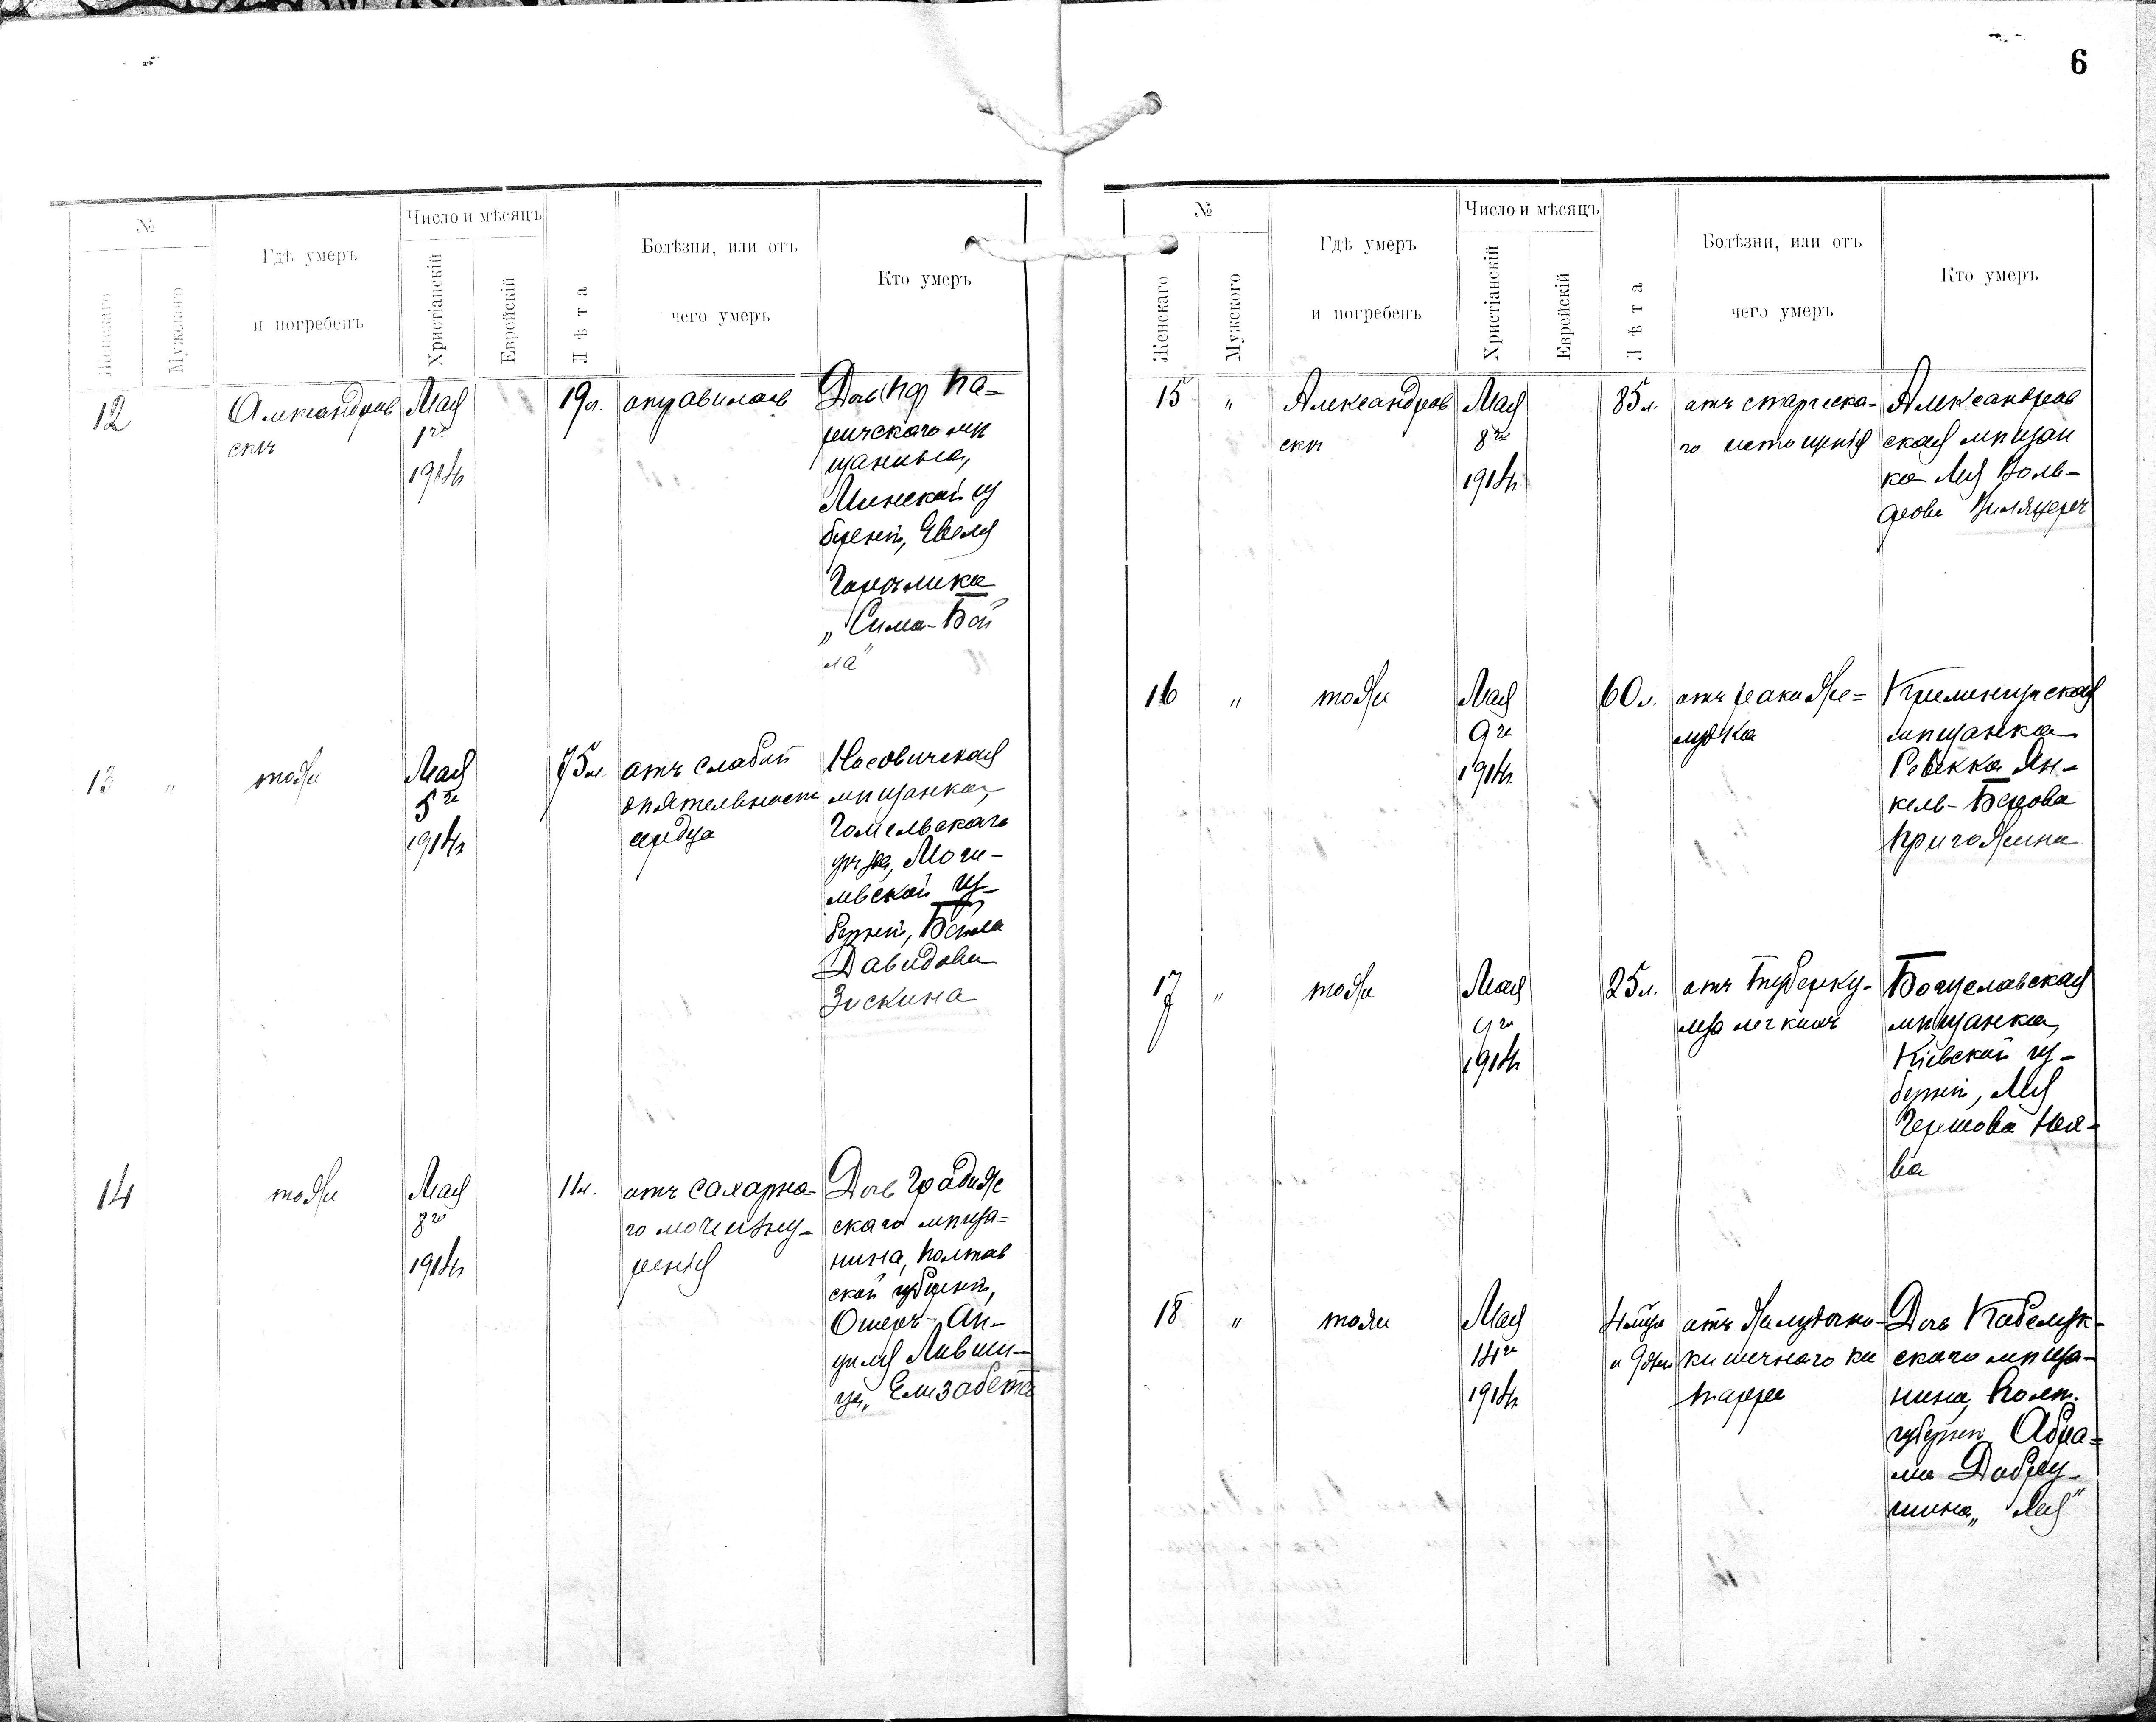 6
№
Женскаго
Мужского
Гдѣ умеръ
и погребенъ
Число и мѣсяцъ
Христіанскій
Еврейскій
Лѣта
Болѣзни, или отъ
чего умеръ
Кто умеръ
12
Александров
скъ
Мая
1го
1914г
19л.
отравилась
Дочь Па=
ричскаго мѣ
щанина,
Минской гу
берніи, Евеля
Горелика
„Сима-Бей
ла"
13 „
тоже
Мая
5го
1914г
75л.
отъ слабой
дѣятельности
сердца
Носовичская
мѣщанка,
Гомельскаго
уѣзда, Моги-
левской гу-
берніи, Бейла
Давидова
Зискина
14
тоже
Мая
8го
1914г
11л.
отъ сахарна-
го мочеизну-
ренія
Дочь Градиж
скаго мѣща=
нина, Полтав
ской губерніи,
Ошеръ-Ан-
целя Лившиц-
ца „Елизабета
№
Женскаго
Мужского
Гдѣ умеръ
и погребенъ
Число и мѣсяцъ
Христіанскій
Еврейскій
Лѣта
Болѣзни, или отъ
чего умеръ
Кто умеръ
15 „
Александров
скъ
Мая
8го
1914г
85л.
отъ старческа-
го истощенія
Александров
ская мѣщан
ка Лея Воль-
фова
16 „
тоже
Мая
9го
1914г
60л.
отъ рака же=
лудка
Кременчугская
мѣщанка
Ревекка Ян-
кель-Берова
Пригожина
17 „
тоже
Мая
9го
1914г
25л.
отъ туберку-
леза легкихъ
Богуславская
мѣщанка,
Кіевской гу-
берніи, Лея
Гершова
18 „
тоже
Мая
14го
1914г
4 мѣсяца
и 9 дней
отъ желудочно-
кишечнаго ка
тарра
Дочь Кобеляк-
скаго мѣща-
нина, Полт.
губерніи Абра=
ма Добру-
шина „Лея"